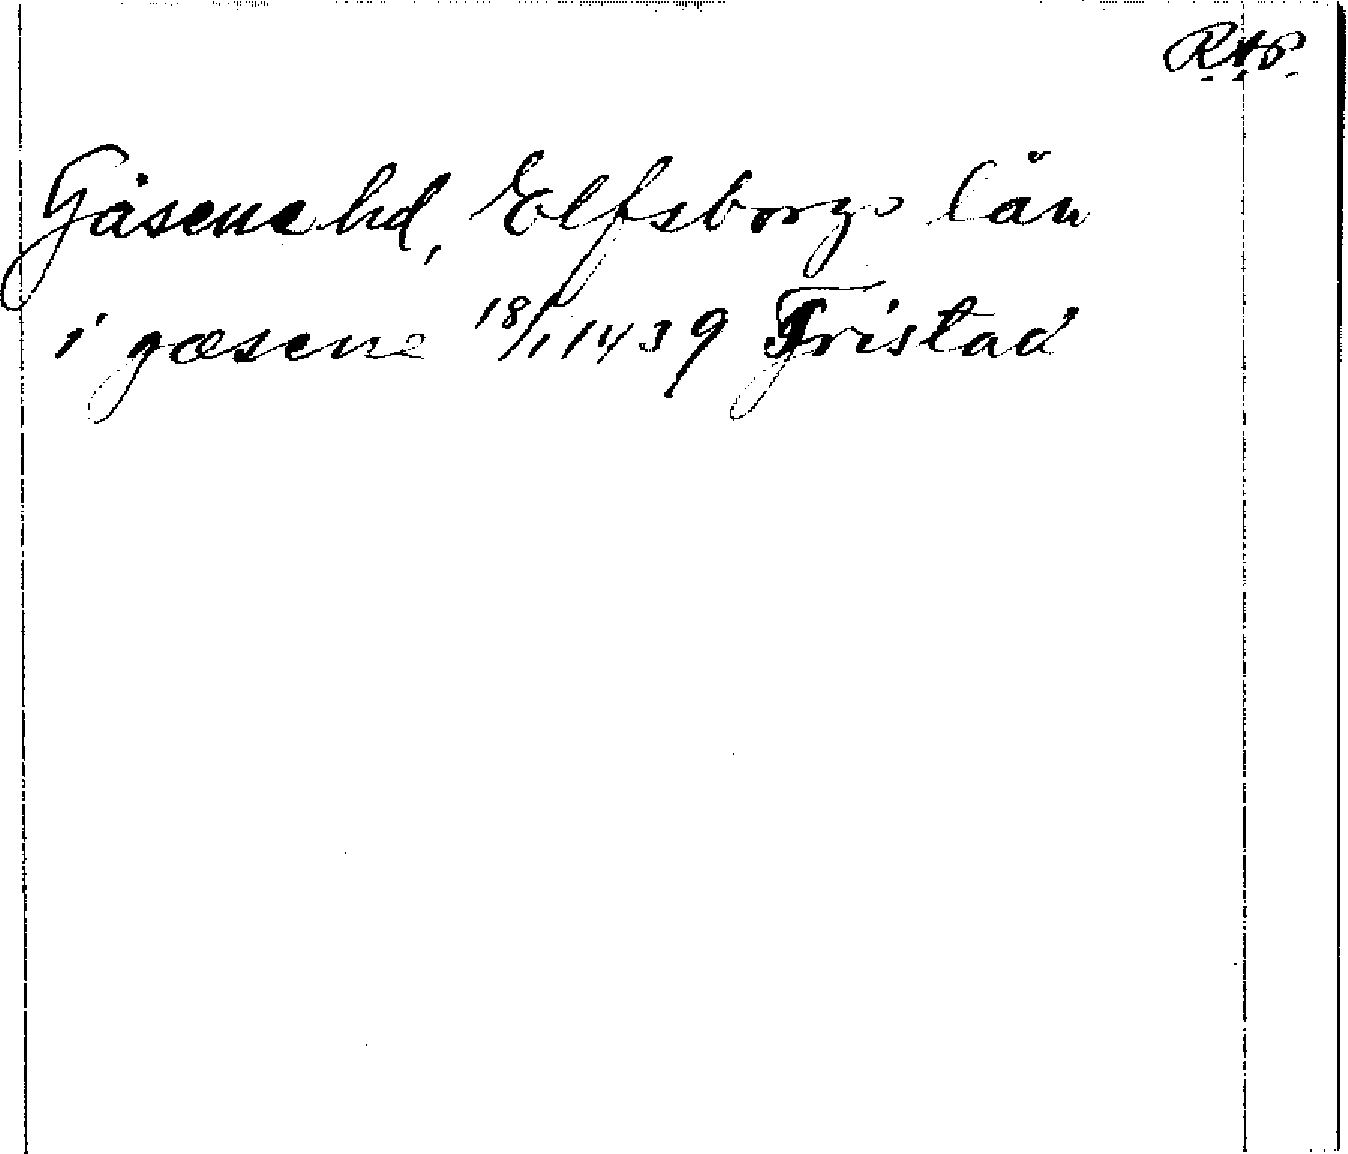 R.A.P.
Gäsene hd, Elfsborgs län
i gæsene 18/1 1439 Fristad